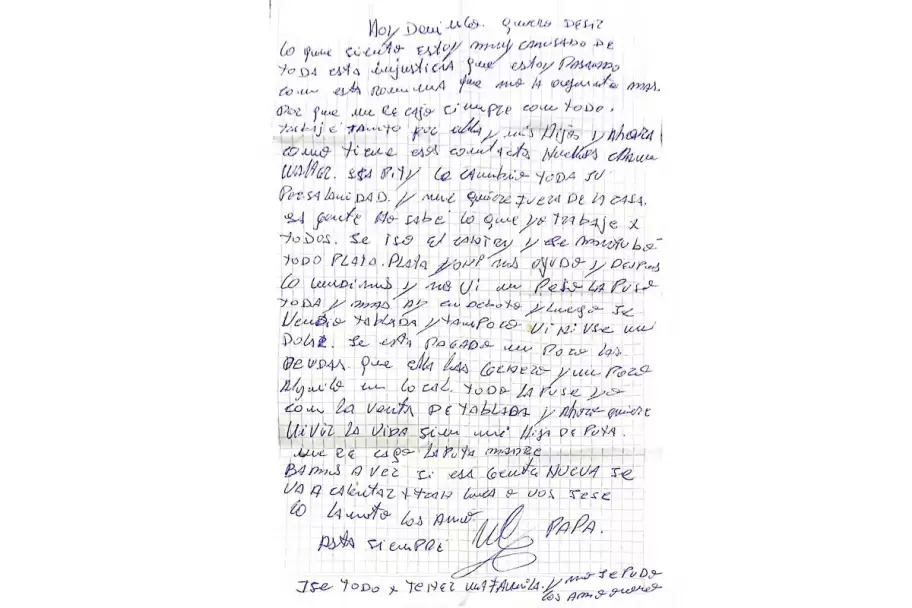 Hoy Domingo. quiero DESIR
lo que siento estoy muy cansado DE
TODA esta injusticia que estoy PASANDO
con esta que no la aguanto mas.
Por que me re cajo siempre con TODO.
trabije TANTO por ella y mis Hijos y Ahora
como tiene esos contactos Nuevos
WALTER. PITY lo cambio TODA SU
PERSALINIDAD. y me quiere fuera DE LA CASA.
esa gente No SABE lo que yo trabaje x
TODOS. Se iso el y se mantubo
TODO PLATA. PLATA y OMP nos ayudo y DESPUES
lo vendimos y no vi un Peso LA PUSE
TODA y mas Ay en Devoto y luego se
Vendio TABLADA y TAMPOCO Vi NiVSE un
DOLAR. Se esta PAGADO un Poco las
DEUDAS. Que ella LAS Genero y un Poco
Alquilo un local. TODO LA PUSE yo
con la venta DE TABLADA y Ahora quiere
ViViR LA ViDA sin mi HijA DE PUTA.
me re cago LA PUTA MADRE
BAMOS A VER si esa Genta NUEVA Se
VA A calentar x como o vos JESE
lo lamento los Amo
Asta siempre PAPA.
ISE TODO x TENER una FAMILA. y no se PUDO
los Amo